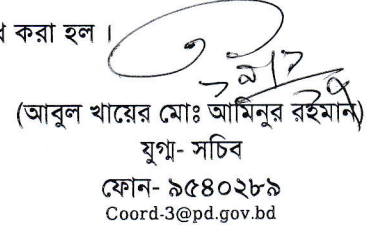 করা হল ।
(আবুল খায়ের মোঃ আমিনুর রহমান)
যুগ্ম- সচিব
ফোন- ৯৫৪০২৮৯
Coord-3@pd.gov.bd